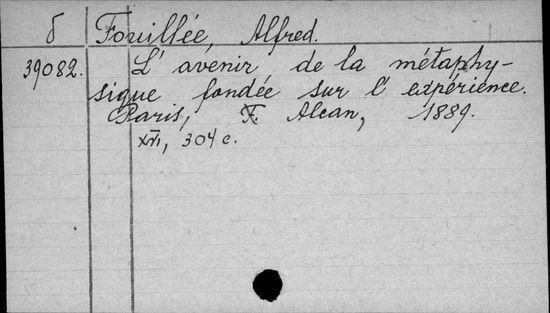 б Fouillée, Alfred.
39082. L' avenir de la métaphy-
sique fondée sur l' expérience.
Paris, F. Alcan, 1889.
XVI, 304 c.